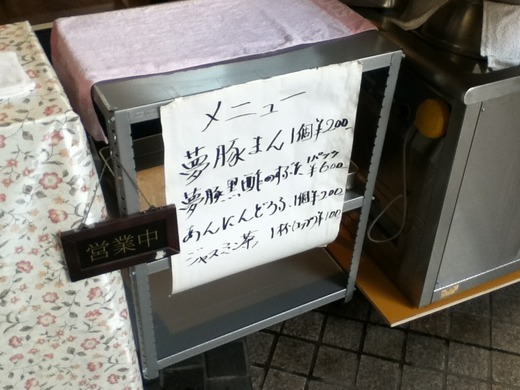 メニュー
夢豚まん 1個¥200
夢豚黒酢のすぶた 1パック¥600
あんにんどうふ 1個¥200
ジャスミン茶 1杯(コップ)¥100
営業中